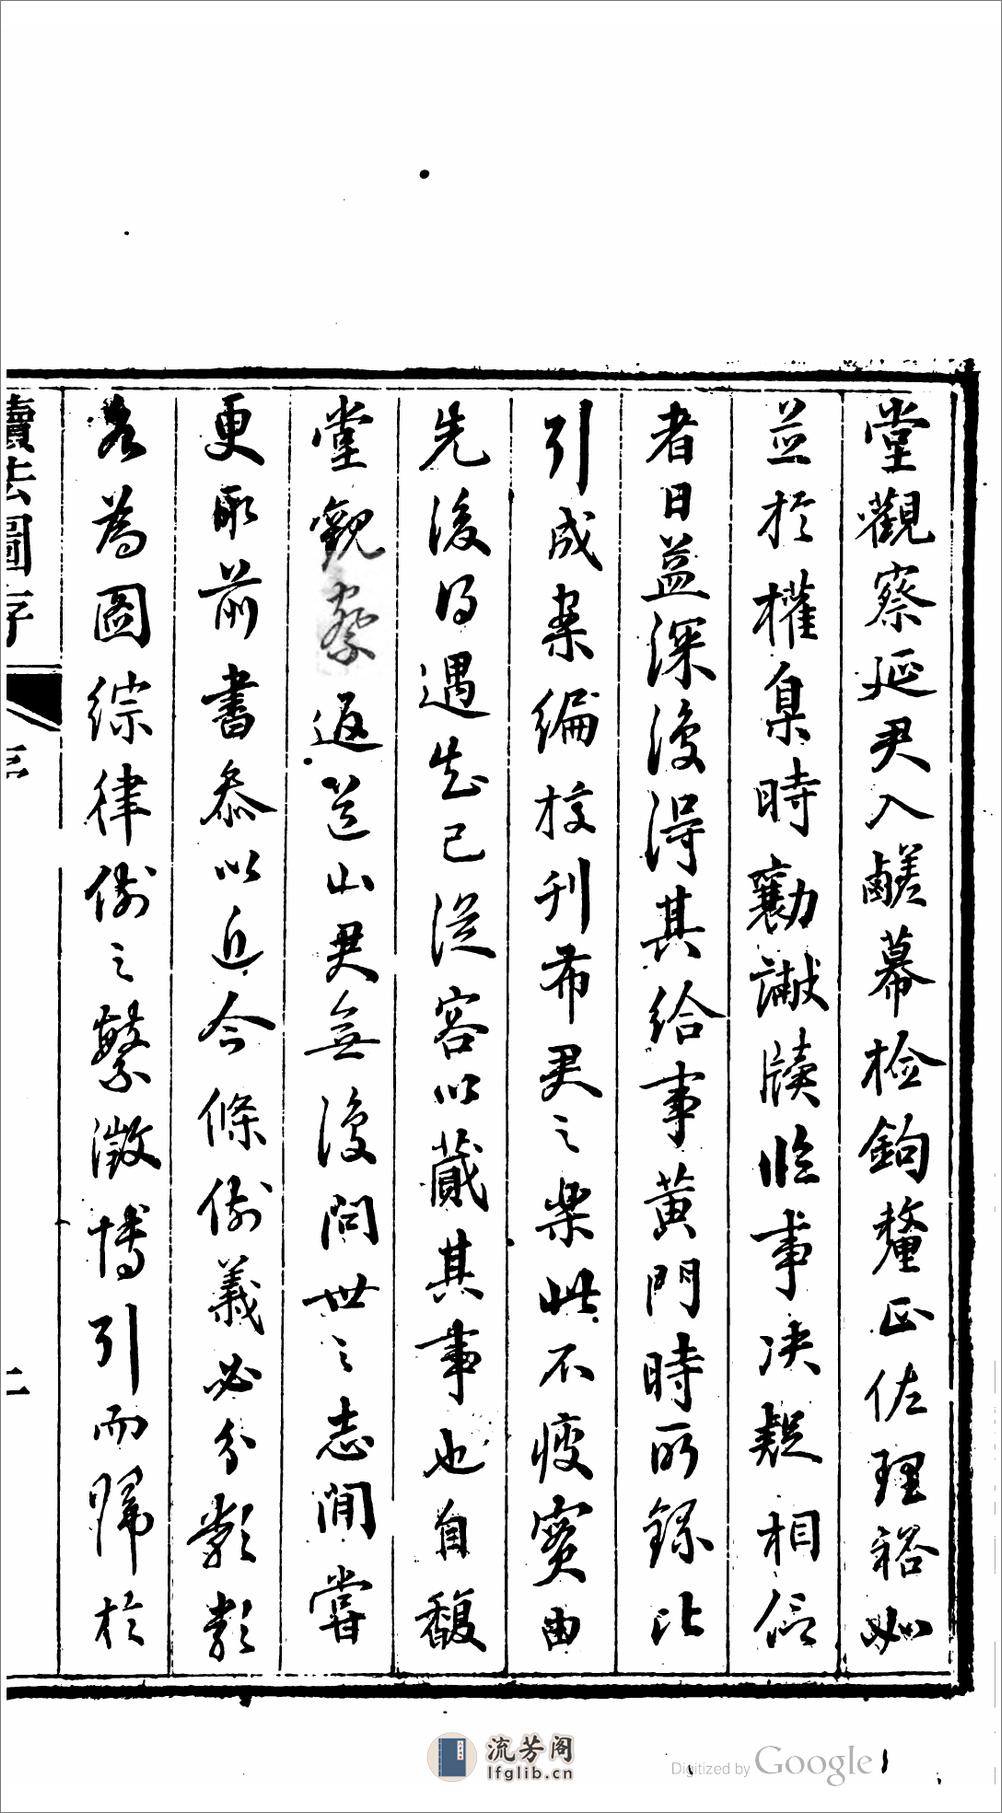 堂觀察延尹入鹺幕檢鉤釐正佐理裕如
並於權臬時勷讞牘臨事決疑相信
者日益深復得其給事黃門時所錄比
引成案編校刊布君之樂此不疲實由
先後得遇知己從容以蕆其事也自馥
堂觀察返道山君無復問世之志間嘗
更取前書參以近今條例義必分類類
各為圖綜律例之繁徵博引而歸於
讀法圖存
序
二
流芳阁
lfglib.cn
Digitized by Google